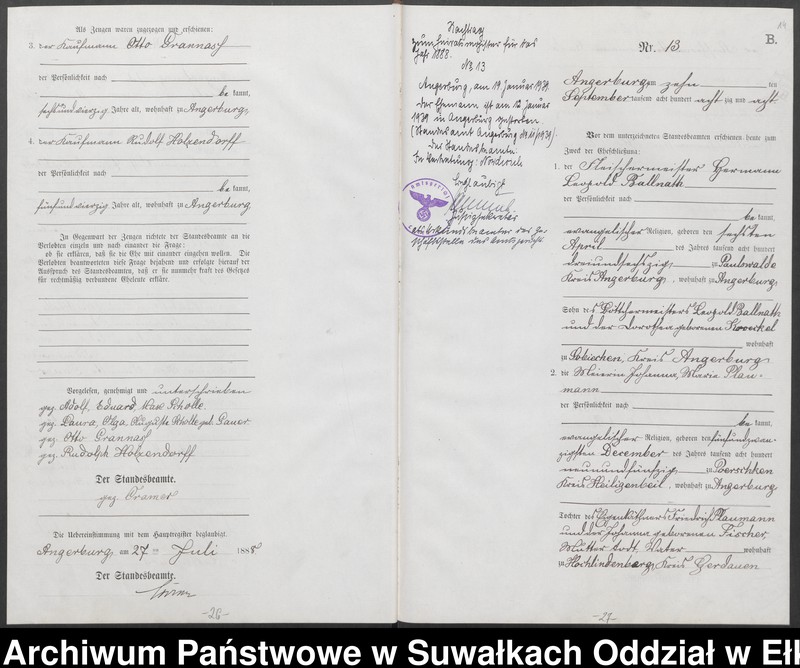 Als Zeugen waren zugezogen und erschienen:
3. der Kaufmann Otto Grannass
der Persönlichkeit nach
be kannt,
sechsundvierzig Jahre alt, wohnhaft zu Angerburg,
4. der Kaufmann Rudolf Holzendorff
der Persönlichkeit nach
be kannt,
fünfundvierzig Jahre alt, wohnhaft zu Angerburg
In Gegenwart der Zeugen richtete der Standesbeamte an die
Verlobten einzeln und nach einander die Frage:
ob sie erklären, daß sie die Ehe mit einander eingehen wollen. Die
Verlobten beantworteten diese Frage bejahend und erfolgte hierauf der
Ausspruch des Standesbeamten, daß er sie nunmehr kraft des Gesetzes
für rechtmäßig verbundene Eheleute erkläre.
Vorgelesen, genehmigt und unterschrieben
gez. Adolf, Eduard, Max Scholle.
gez. Laura, Olga, Auguste Scholle geb. Gauer
gez. Otto Grannass
gez. Rudolph Holzendorff
Der Standesbeamte.
gez. Cramer
Die Uebereinstimmung mit dem Hauptregister beglaubigt.
Angerburg, am 27 ten Juli 1888
Der Standesbeamte.
-26-
Nachtrag
zum Heiratsregister für das
Jahr 1888.
No 13
Angerburg, am 19. Januar 1939.
Der Ehemann ist am 12. Januar
1939 in Angerburg gestorben
(Standesamt Angerburg No 11/1939).
Der Standesbeamte
In Vertretung:
Beglaubigt
Justizsekretär
Amtsgericht
14
B.
Nr. 13
Angerburg am zehn ten
September tausend acht hundert acht zig und acht
Vor dem unterzeichneten Standesbeamten erschienen heute zum
Zweck der Eheschließung:
1. der Fleischermeister Hermann
Leopold Ballnath
der Persönlichkeit nach
be kannt,
evangelischer Religion, geboren den sechsten
April des Jahres tausend acht hundert
dreiundsechszig, zu Paulswalde
Kreis Angerburg, wohnhaft zu Angerburg,
Sohn des Böttchermeisters Leopold Ballnath
und der Dorothea geborenen
wohnhaft
zu Sobiechen, Kreis Angerburg,
2. die Meierin Johanna, Maria Plau-
mann
der Persönlichkeit nach
be kannt,
evangelischer Religion, geboren den fünfundzwan-
zigsten December des Jahres tausend acht hundert
neunundfünfzig, zu Perschken
Kreis Heiligenbeil, wohnhaft zu Angerburg
Tochter des Eigenkäthners Friedrich Plaumann
und der Johanna geborenen Fischer,
Mutter todt, Vater wohnhaft
zu Hochlindenberg, Kreis Gerdauen
-27-
Archiwum Państwowe w Suwałkach Oddział w Ełk